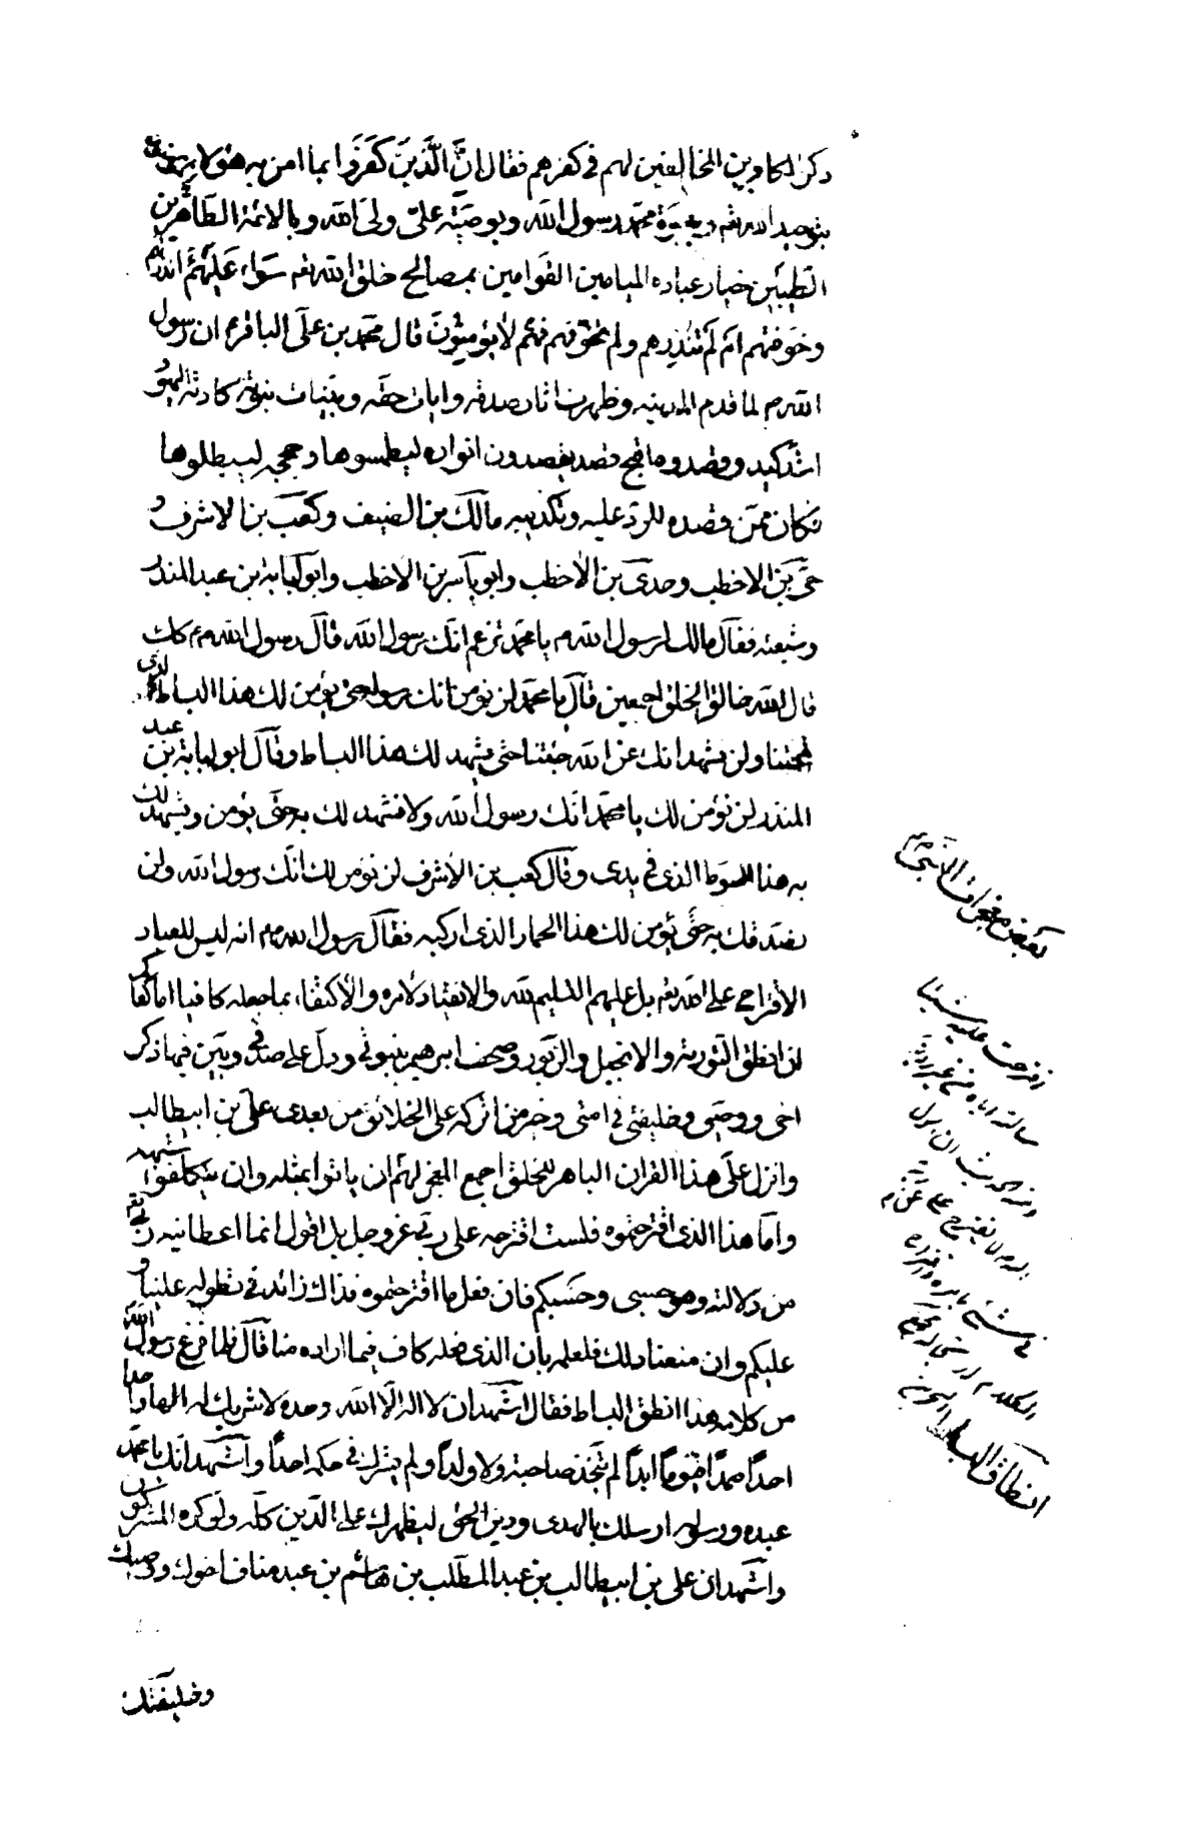 ذكر الكافرين المخالفين لهم في كفرهم فقال انَّ الَّذينَ كَفَرُوا بما امن به هؤلاء المؤمنون
بتوحيد الله تعم وبنبوّة محمّد رسول الله وبوصيّه عليّ وليّ الله وبالائمة الطّاهرين
الطّيبين خيار عباده الميامين القوامين بمصالح خلق الله تعم سَواء عَلَيْهم ءانذرتهم
وخوفتهم امْ لَمْ تُنْذِرهم ولم تخوّفهم فهم لا يؤمنُونَ قال محمّد بن علىّ الباقرع ان رسول
اللهص لما قدم المدينه وظهرت اثار صدقه وايات حقّه وبيّنات نبوّته كادته اليهود
اشدّ كيد وقصدوه اقبح قصد يقصدون انواره ليطمسوها وحججه ليبطلوها
فكان ممّن قصده للردّ عليه وتكذيبه مالك بن الضيف وكعب بن الاشرف و
حيّ بن الاخطب وحدىّ بن الاخطب وابو ياسر بن الاخطب وابو لبابة بن عبد المنذر
وشيعته فقال مالك لرسول اللهص يا محمّد تزعم انّك رسول الله قال رسول اللهص كذلك
قال الله خالق الخلق اجمعين قال يا محمّد لن نؤمن انك رسوله حتى يؤمن لك هذا البساط الذى
تحتنا ولن نشهد انك عن الله جئتنا حتى يشهد لك هذا البساط وقال ابو لبابة بن عبد
المنذر لن نؤمن لك يا محمّد انّك رسول الله ولا نشهد لك به حتّى يؤمن ويشهد لك
به هذا السّوط الذى في يدى وقال كعب بن الاشرف لن نؤمن لك انّك رسول الله ولن
نصدّقك به حتّى يؤمن لك هذا الحمار الذى اركبه فقال رسول اللهص انه ليس للعباد
الاقتراح على الله تعم بل عليهم التسليم لله والانقياد لامره والاكتفاء بما جعله كافيا اما كفاكم
ان انطق التّورية والانجيل والزّبور وصحف ابرهيم بنبوتي ودلّ على صدقي وبيّن فيها ذكر
اخى ووصيّى وخليفتي في امتى وخير من اتركه على الخلائق من بعدى علىّ بن ابيطالب
وانزل علىّ هذا القران الباهر للخلق اجمع المعجز لهم ان ياتوا بمثله وان يتكلفوا شبهه
وامّا هذا الذى اقترحتموه فلست اقترحه على ربّي عزوجل بل اقول انما اعطانيه ربّي تعم
من دلالته وهو حسبى وحسبكم فان فعل ما اقترحتموه فذاك زائد في تطوله علينا و
عليكم وان منعنا ذلك فلعلمه بان الذى فعله كاف فيما اراده منا قال فلما فرغ رسول الله
من كلامه هذا انطق الله البساط فقال اشهد ان لا اله الّا الله وحده لا شريك له الها واحدا
احداً صمداً قيّوماً ابداً لم يتّخذ صاحبة ولا ولداً ولم يشرك في حكمه احداً واشهد انّك يا محمّد
عبده ورسوله ارسلك بالهدى ودين الحقّ ليظهرك على الدّين كلّه ولو كره المشركون
واشهد ان على بن ابيطالب بن عبد المطّلب بن هاشم بن عبد مناف اخوك ووصيك
وخليفتك
بعض معجزات النّبيّ ص
اقترحت عليه شيئا
انطاق البساط